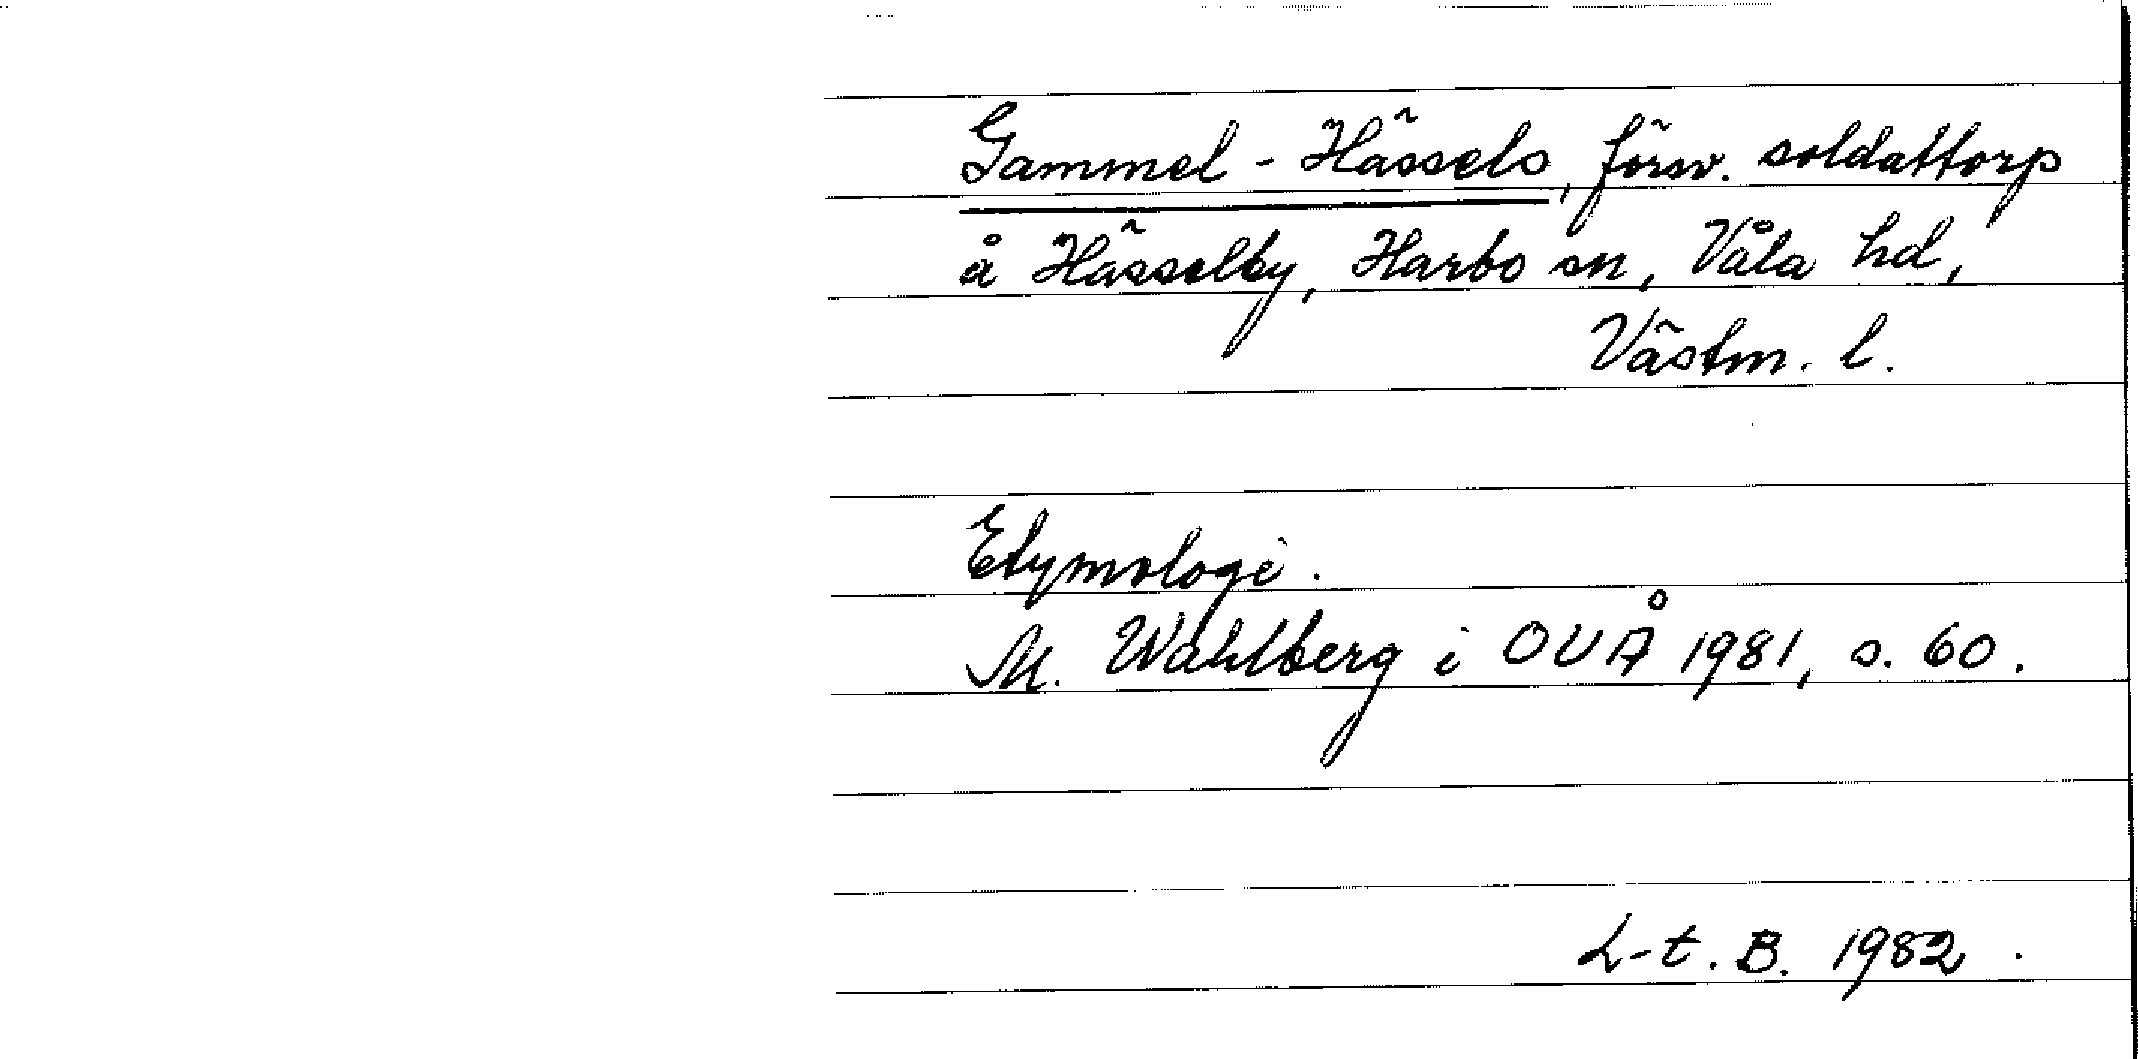 Gammel-Hässels, försv. soldattorp
å Hässelby, Harbo sn, Våla hd,
Västm. l.
Etymologi.
M. Wahlberg i OUÅ 1981, s. 60.
L-t. B. 1982.